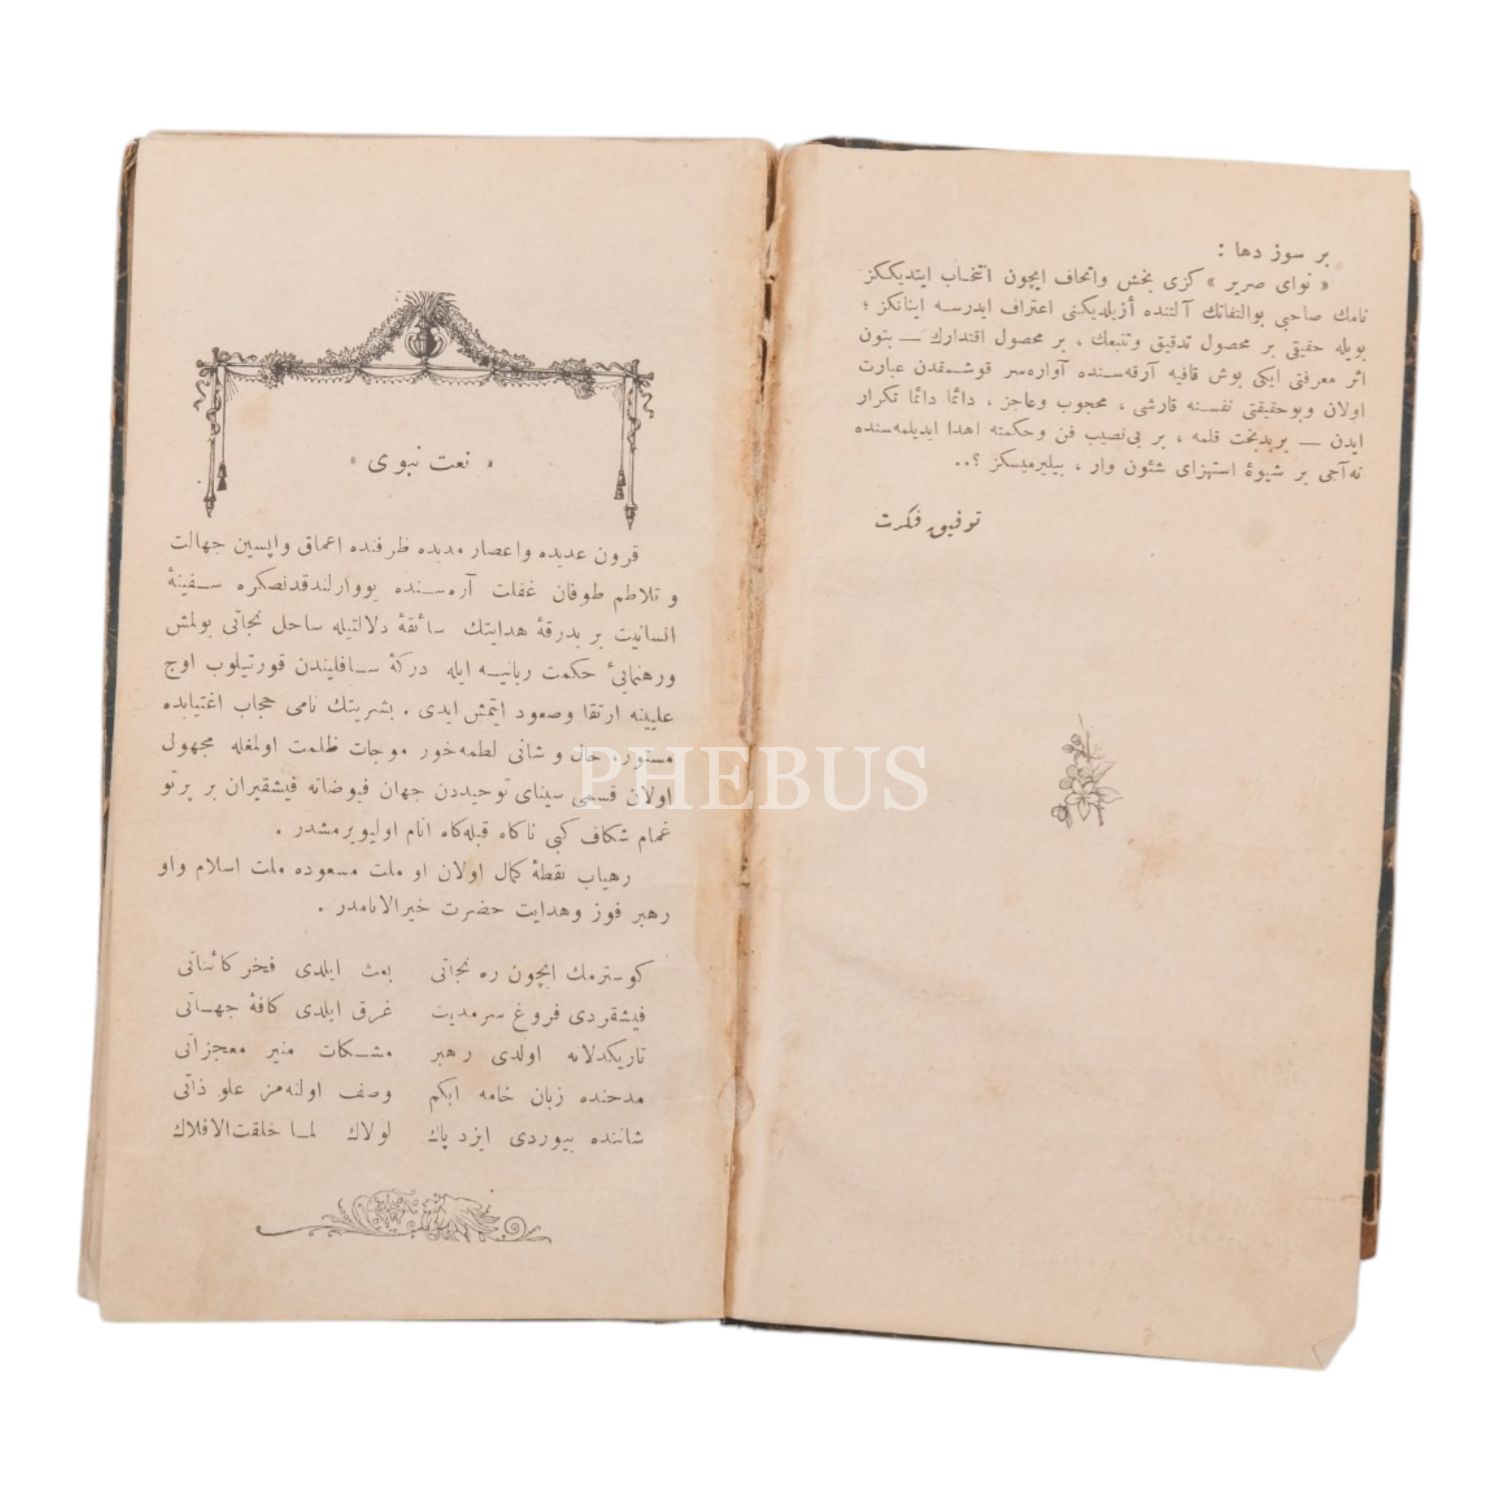 بر سوز دها :
« نوای صریر » کزی بخش واتحاف ایچون انتخاب ایتدیککز
نامك صاحبی بوالتفاتك آلتنده أزیلدیکنی اعتراف ایدرسه اینانکز ؛
بویله حقیقی بر محصول تدقیق وتتبعك ، بر محصول اقتدارك — بتون
اثر معرفتی ایکی بوش قافیه آرقه‌سنده آواره‌سر قوشمقدن عبارت
اولان وبوحقیقتی نفسنه قارشی ، محجوب وعاجز ، دائما دائما تکرار
ایدن — بربدبخت قلمه ، بر بی‌نصیب فن وحکمته اهدا ایدیلمه‌سنده
نه‌آجی بر شیوۀ استهزای شئون وار ، بیلیرمیسکز ؟..
توفیق فکرت
« نعت نبوی »
قرون عدیده واعصار مدیده ظرفنده اعماق واپسین جهالت
و تلاطم طوفان غفلت آره‌سنده یووارلندقدنصکره سفینۀ
انسانیت بر بدرقۀ هدایتك سائقۀ دلالتیله ساحل نجاتی بولمش
ورهنمایئ حکمت ربانیه ایله درکۀ سافلیندن قورتیلوب اوج
علیینه ارتقا وصعود ایتمش ایدی . بشریتك نامی حجاب اغتیابده
مستور، حال و شانی لطمه‌خور موجات ظلمت اولمغله مجهول
اولان قسمی سینای توحیددن جهان فیوضاته فیشقیران بر پرتو
غمام شکاف کبی ناکاه قبله‌کاه انام اولیویرمشدر .
رهیاب نقطۀ کمال اولان او ملت مسعوده ملت اسلام واو
رهبر فوز وهدایت حضرت خیرالانامدر .
کوسترمك ایچون ره نجاتی    بعث ایلدی فخر کائناتی
فیشقردی فروغ سرمدیت    غرق ایلدی کافۀ جهاتی
تاریکدلانه اولدی رهبر    مشکات منیر معجزاتی
مدحنده زبان خامه ابکم    وصف اولنه‌مز علو ذاتی
شاننده بیوردی ایزد پاك    لولاك لما خلقت‌الافلاك
PHEBUS